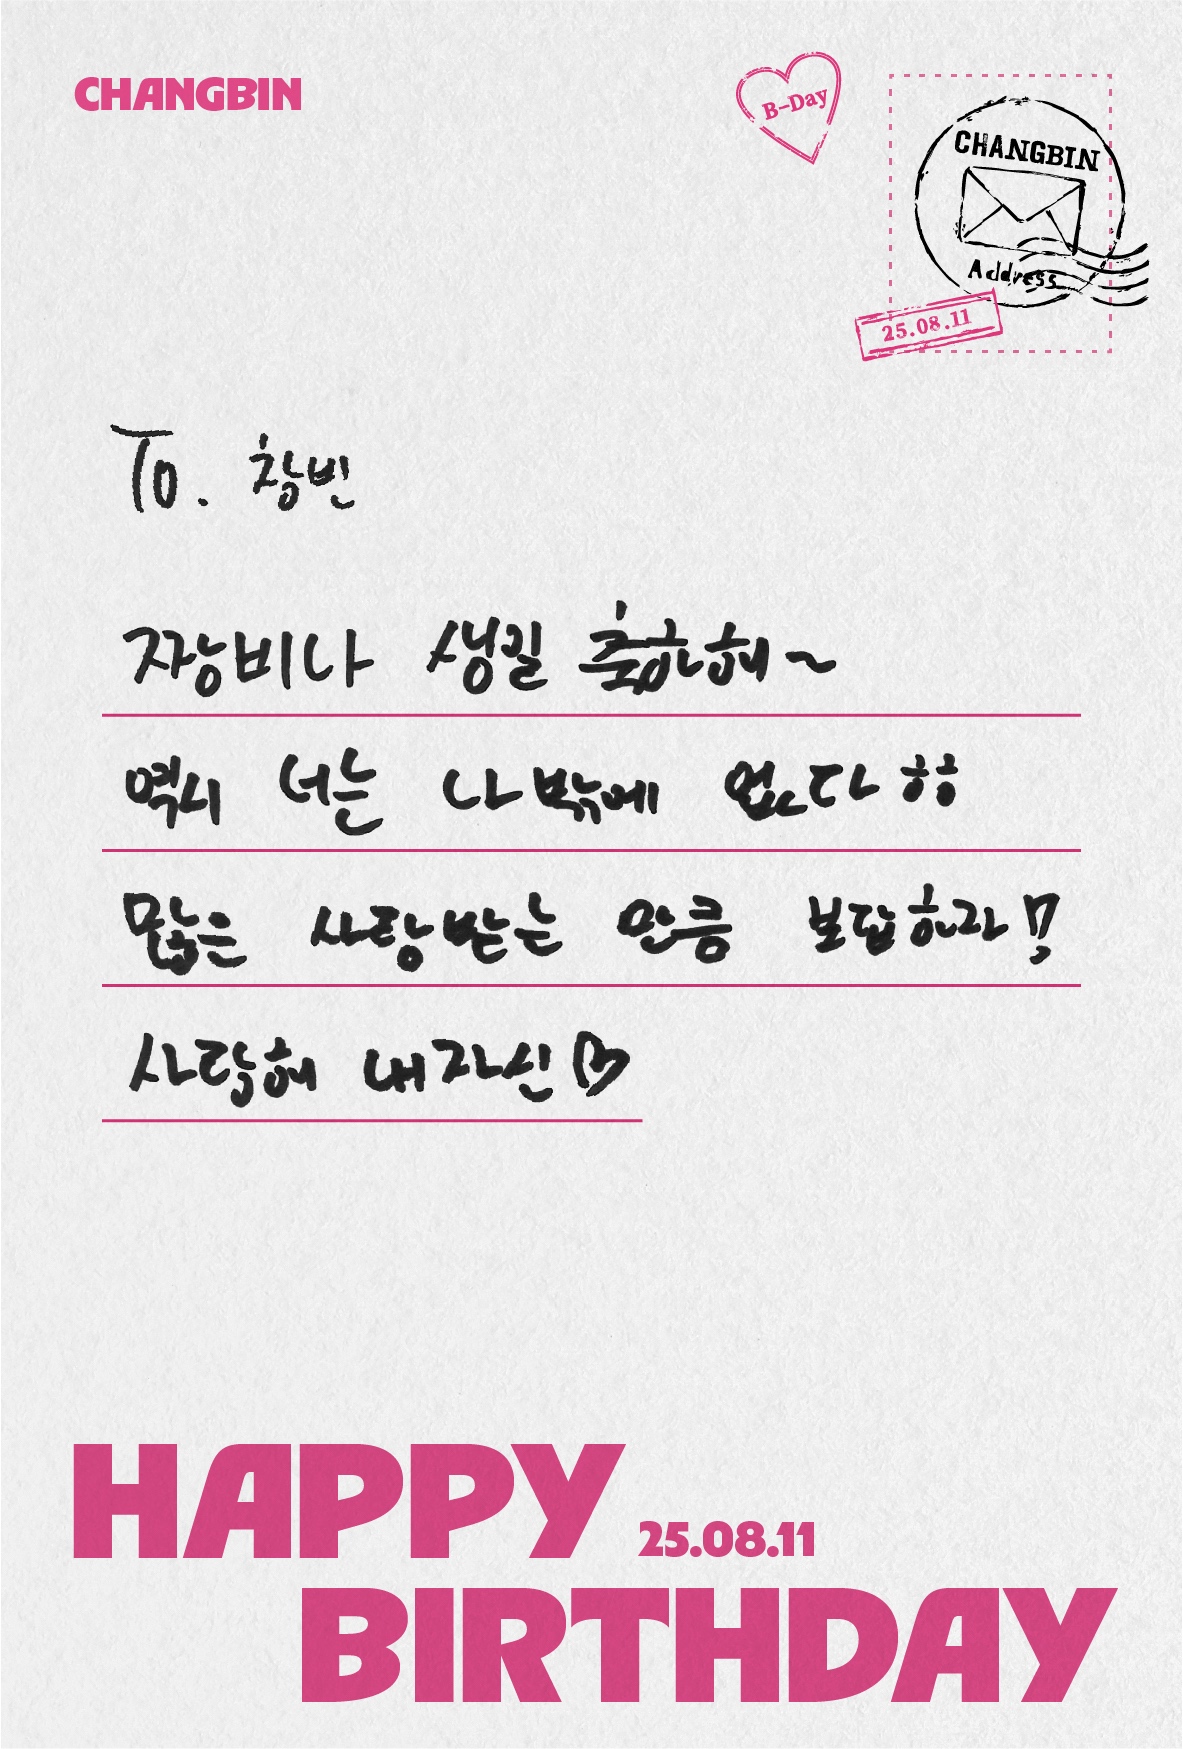 CHANGBIN
B-Day
CHANGBIN
Address
25.08.11
To. 창빈
짱비나 생일 축하해~
역시 너는 나밖에 없다 ㅎㅎ
많은 사랑받는 만큼 보답하자!!
사랑해 내자신♡
HAPPY
25.08.11
BIRTHDAY